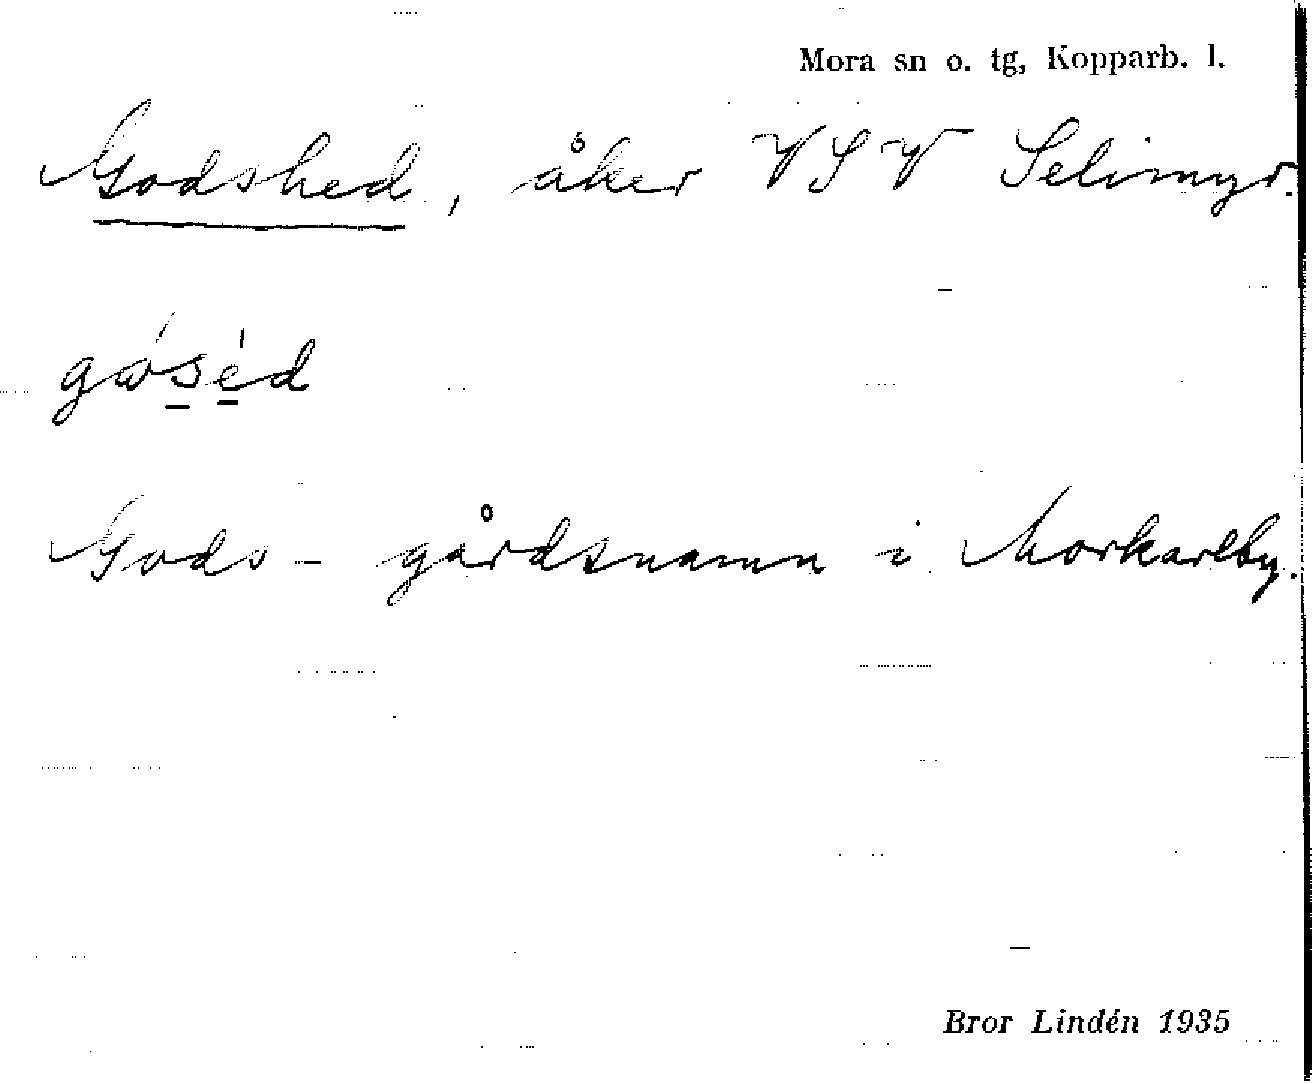 Mora sn o. tg, Kopparb. l.
Godshed, åker VSV Selimyr.
gὼsèd
Gods- gårdsnamn i Morkarlby.
Bror Lindén 1935